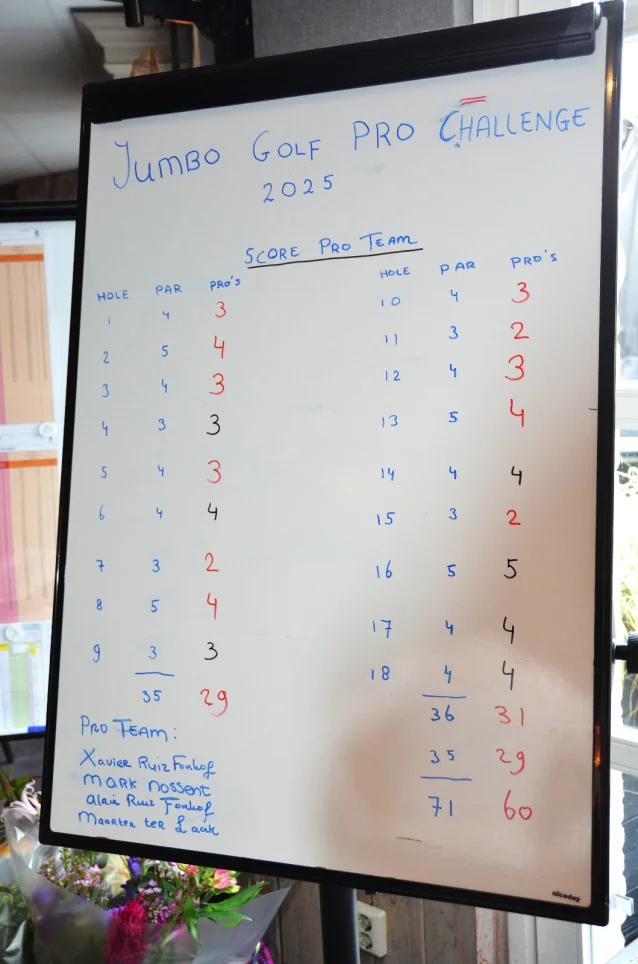 JUMBO GOLF PRO CHALLENGE
2025
SCORE PRO TEAM
HOLE PAR PRO'S
1 4 3
2 5 4
3 4 3
4 3 3
5 4 3
6 4 4
7 3 2
8 5 4
9 3 3
35 29
HOLE PAR PRO'S
10 4 3
11 3 2
12 4 3
13 5 4
14 4 4
15 3 2
16 5 5
17 4 4
18 4 4
36 31
35 29
71 60
PRO TEAM:
Xavier Ruiz Fonhof
mark nossent
alain Ruiz Fonhof
maarten ter Laak
niceday